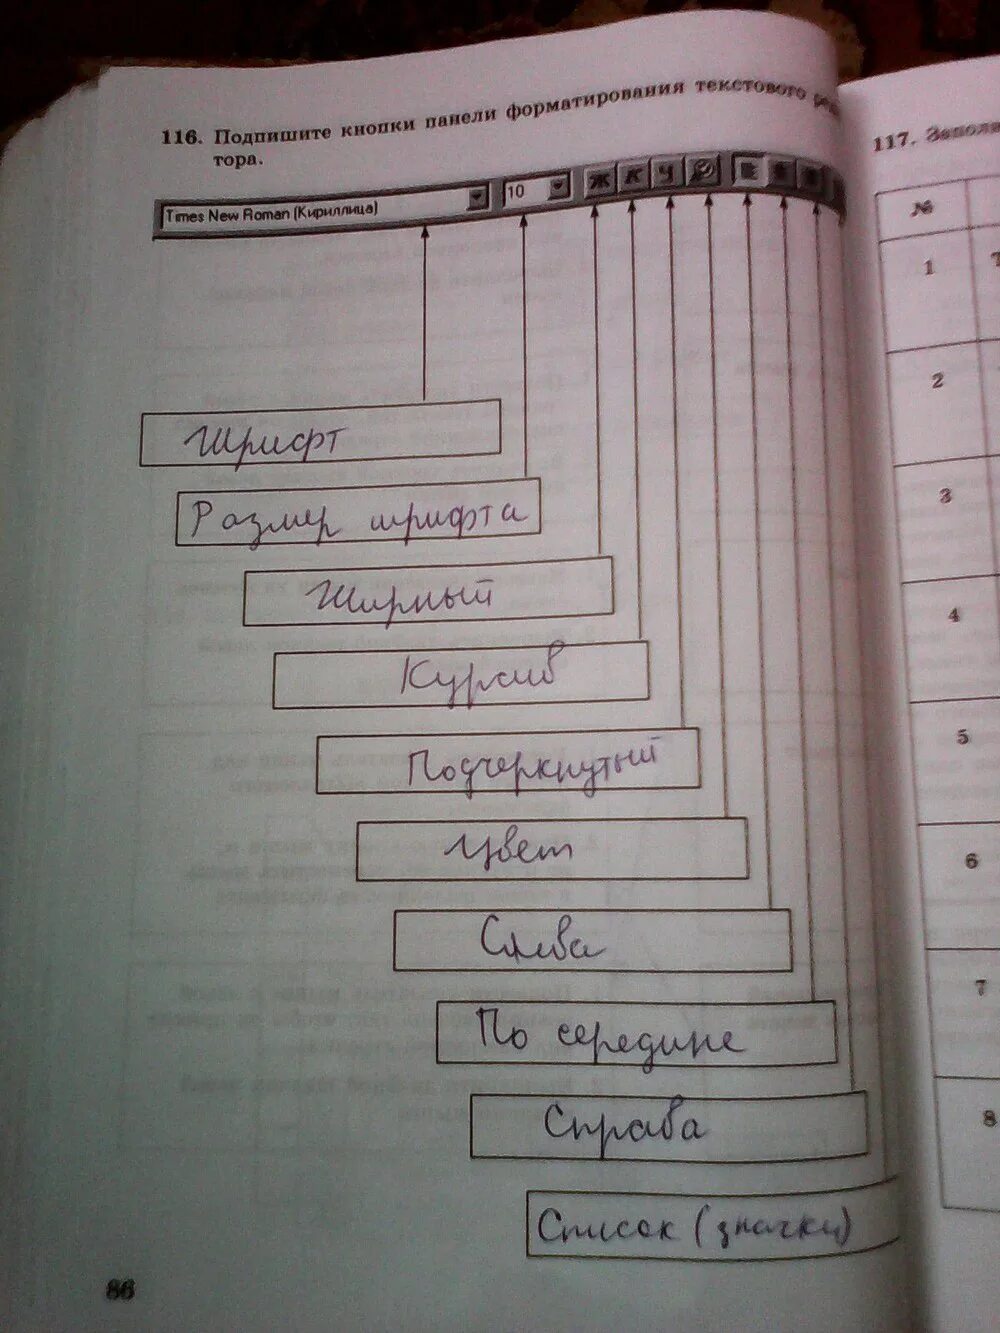 116. Подпишите кнопки панели форматирования текстового
тора.
Times New Roman (Кириллица) 10 Ж К Ч
Шрифт
Размер шрифта
Жирный
Курсив
Подчеркнутый
Цвет
Слева
По середине
Справа
Список (значки)
86
117. Запол
№
1
2
3
4
5
6
7
8